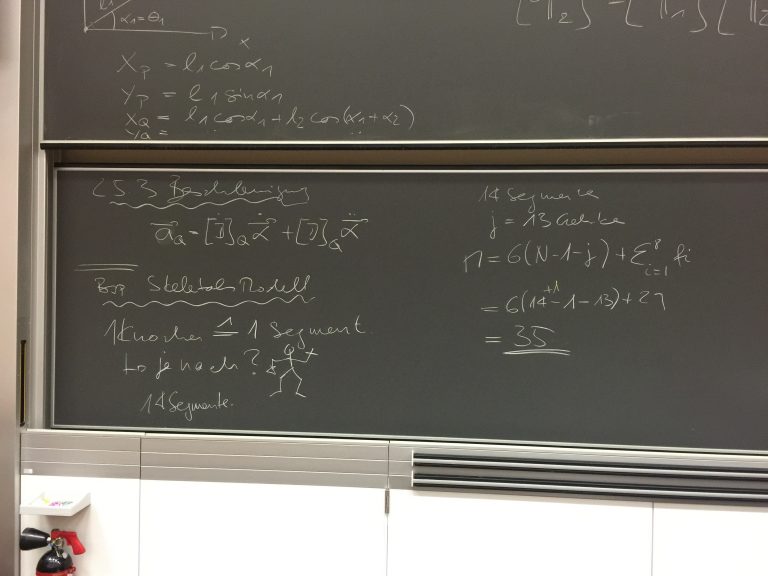 α1=Θ1
x
Xp = l1 cos α1
Yp = l1 sin α1
XQ = l1 cos α1 + l2 cos (α1 + α2)
YQ =
2.5.3 Beschleunigung
a⃗Q = [J̇]Q α̇⃗ + [J]Q α̈⃗
Bsp Skeletales Modell
1 Knochen ≙ 1 Segment.
to je nach?
14 Segmente.
14 Segmente
j = 13 Gelenke
n = 6(N-1-j) + Σ i=1 fi
= 6(14+1-1-13) + 29
= 35